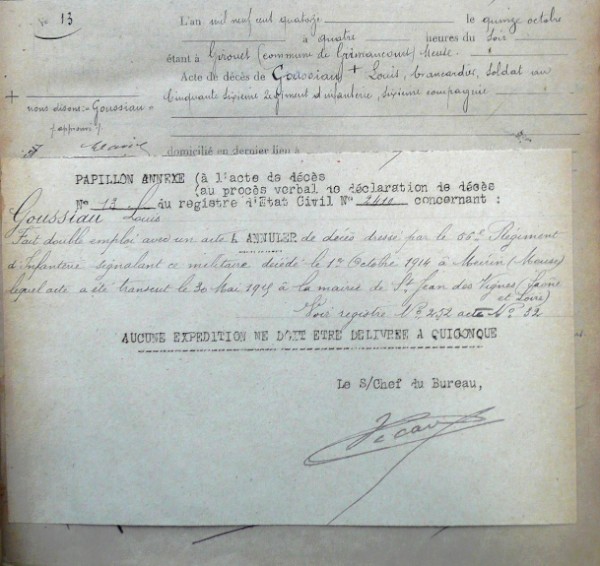 N° 13
L'an mil neuf cent quatorze le quinze octobre
à quatre heures du soir
étant à Girouet (commune de Grimaucourt) Meuse.
Acte de décès de Goussiau + Louis, brancardier, soldat au
cinquante sixième régiment d'infanterie, sixième compagnie
+
nous disons: "Goussiau"
domicilié en dernier lieu à
PAPILLON ANNEXE (à l'acte de décès
(au procès verbal de déclaration de décès
N° 13 du registre d'Etat Civil N° 2411 concernant :
Goussiau Louis
Fait double emploi avec un acte A ANNULER de décès dressé par le 56e Régiment
d'Infanterie signalant ce militaire décédé le 1er Octobre 1914 à (Meuse)
lequel acte a été transcrit le 30 Mai 1915 à la mairie de St Jean des Vignes (Saône
et Loire)
Voir registre N° 252 acte N° 52
AUCUNE EXPEDITION NE DOIT ETRE DELIVREE A QUICONQUE
Le S/Chef du Bureau,